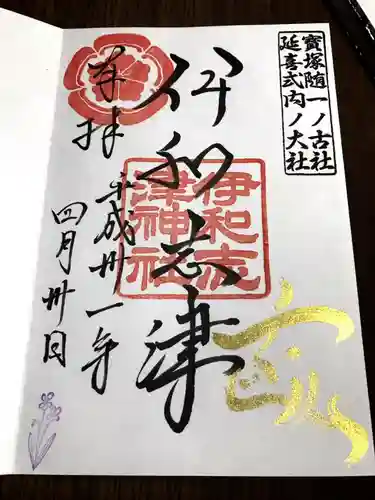 寶塚随一ノ古社
延喜式内ノ大社
伊和志津
伊和志
津神社
奉拝
平成卅一年
四月卅日